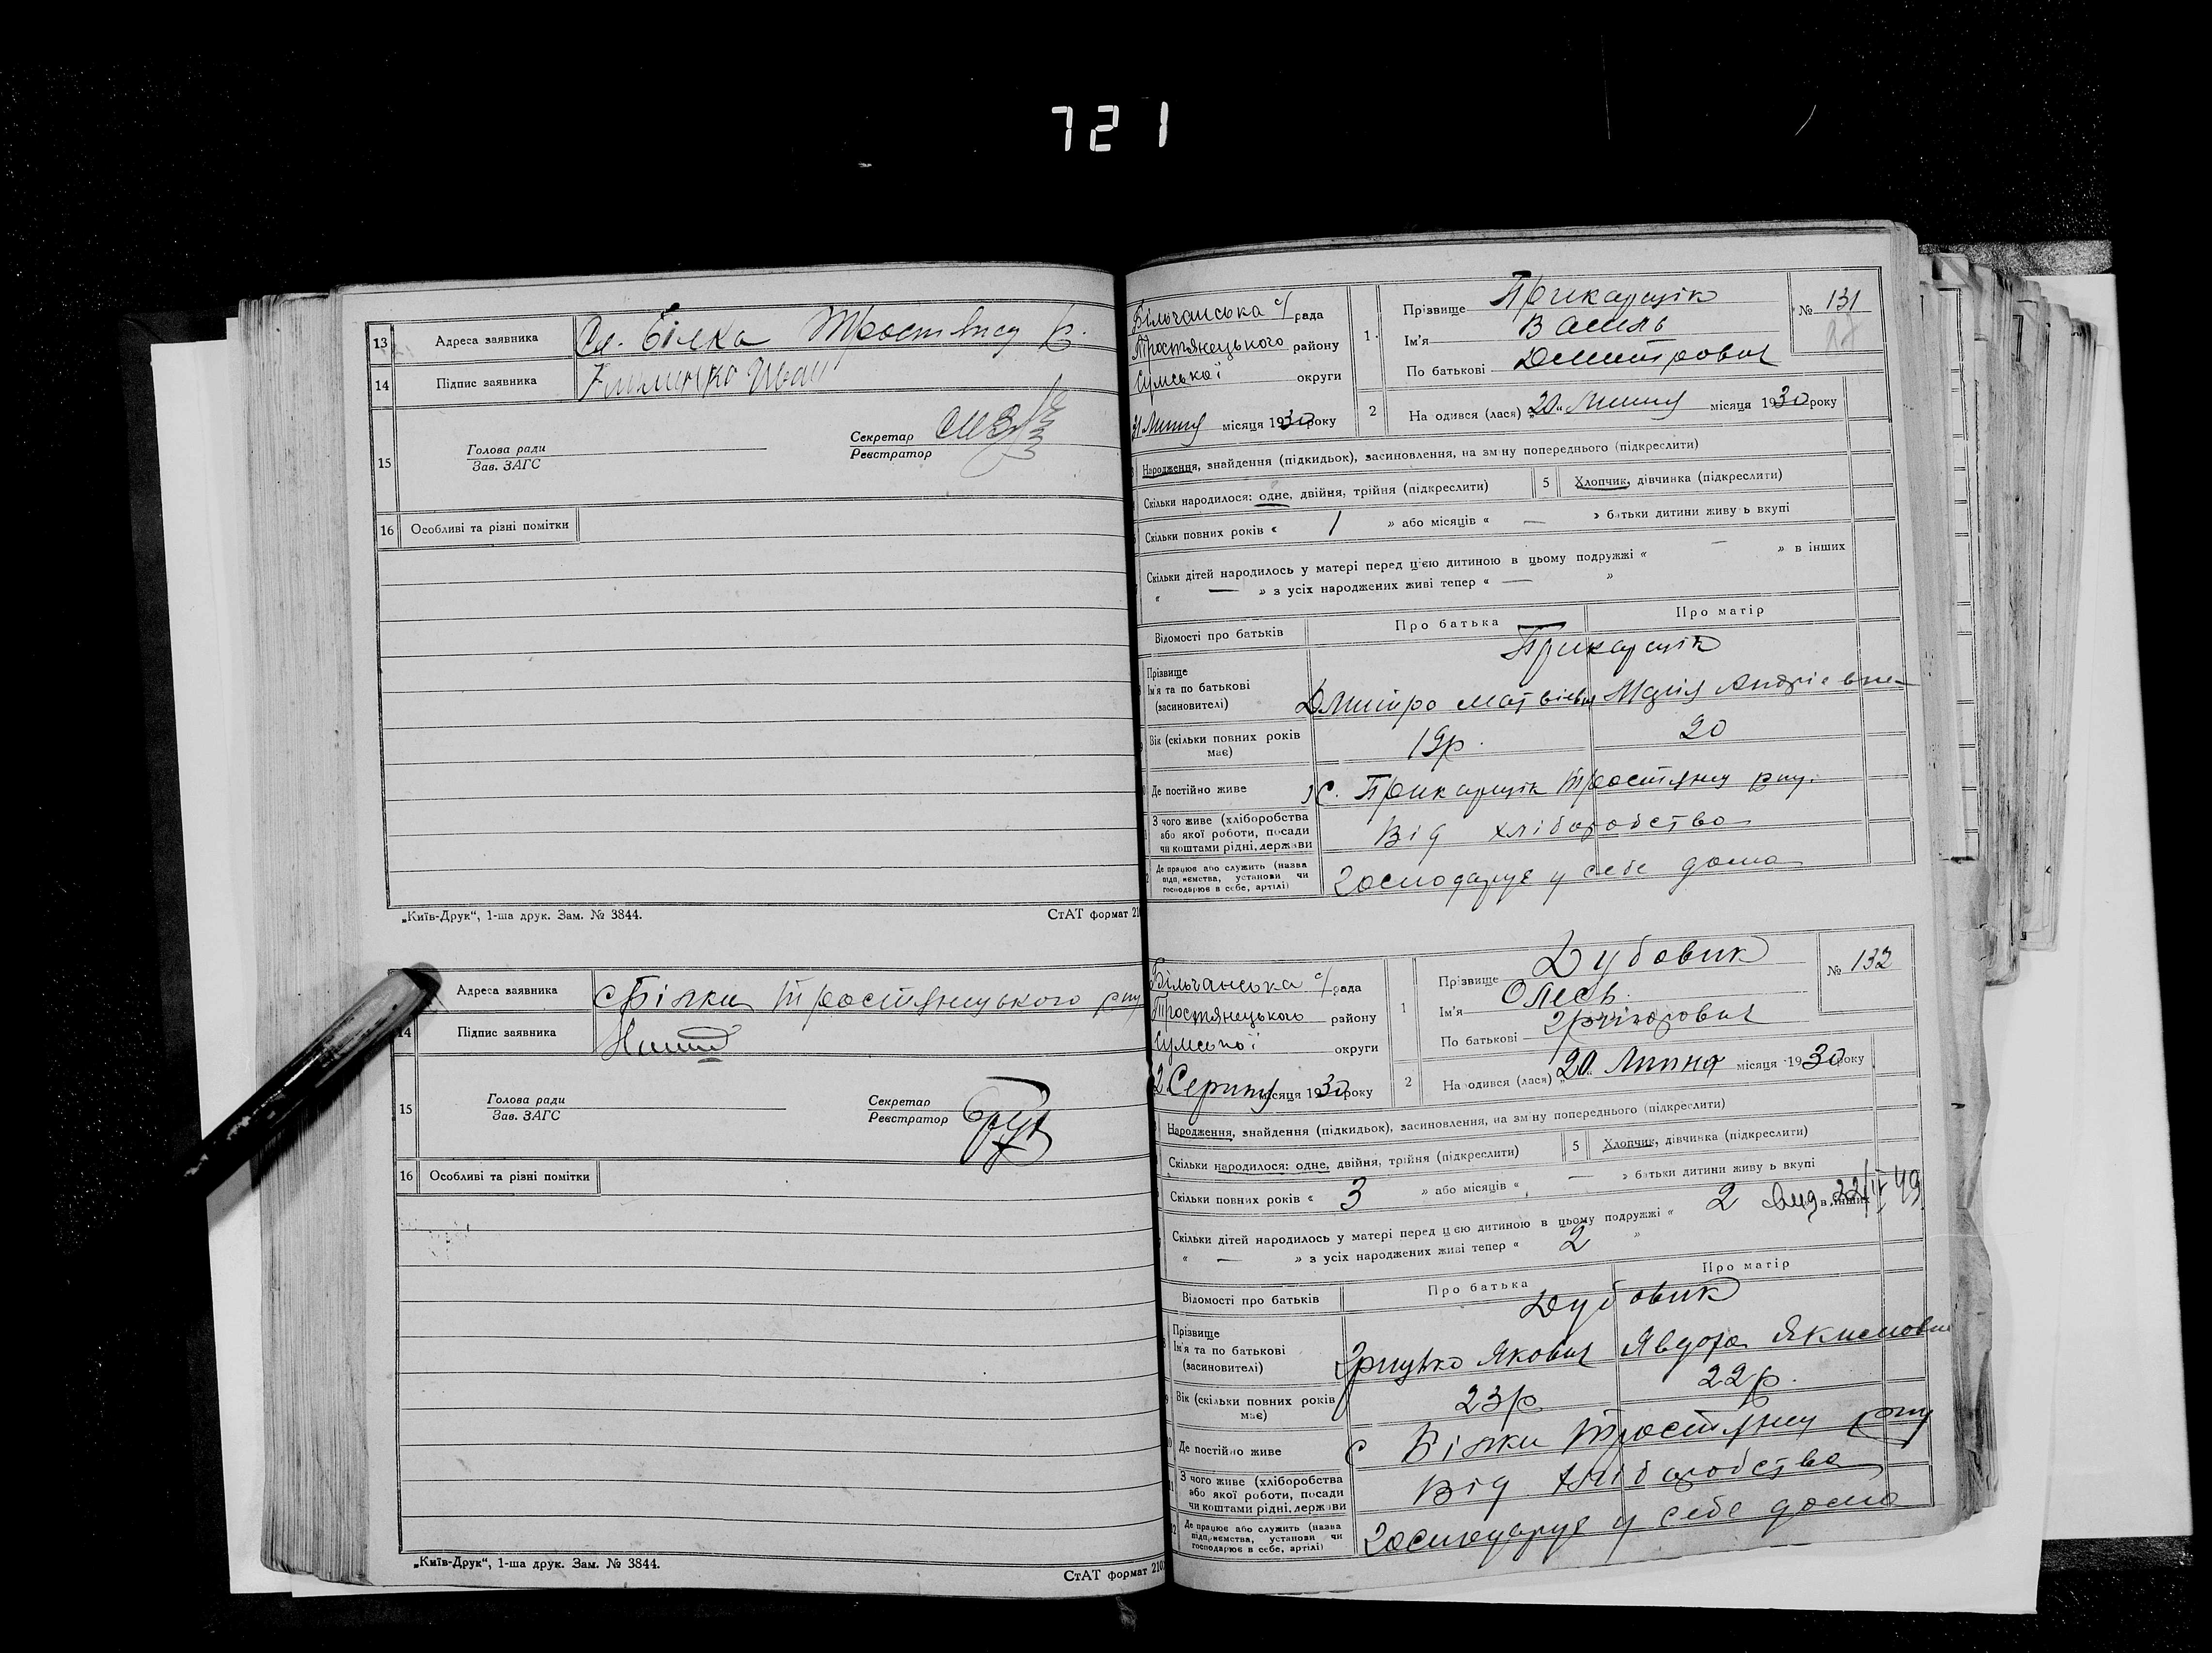 721
13 Адреса заявника Сл. Білка Тростянец р.
14 Підпис заявника Иван
15 Голова ради Секретар
Зав. ЗАГС Реєстратор
16 Особливі та різні помітки
„Київ-Друк“, 1-ша друк. Зам. № 3844. СтАТ формат 210
Адреса заявника с Білки Тростянецького р-ну
14 Підпис заявника
15 Голова ради Секретар
Зав. ЗАГС Реєстратор
16 Особливі та різні помітки
„Київ-Друк“, 1-ша друк. Зам. № 3844. СтАТ формат 210
Більчанська с/рада
Тростянецького району
Сумської округи
31 Липня місяця 1930 року
1. Прізвище Прикащік
Ім'я Василь
По батькові Дмитрович
№ 131
2 Народився (лася) „20“ Липня місяця 1930 року
Народження, знайдення (підкидьок), засиновлення, на зміну попереднього (підкреслити)
Скільки народилося: одне, двійня, трійня (підкреслити) 5 Хлопчик, дівчинка (підкреслити)
Скільки повних років « 1 » або місяців « — » батьки дитини живуть вкупі
Скільки дітей народилось у матері перед цією дитиною в цьому подружжі « — » в інших
« — » з усіх народжених живі тепер « — »
Відомості про батьків Про батька Про матір
Прізвище Прикащік
Ім'я та по батькові
(засиновителі) Дмитро Матвієвич Марія Андрієвна
Вік (скільки повних років має) 19р. 20
Де постійно живе с. Прикащік Тростянец р-ну.
З чого живе (хліборобства
або якої роботи, посади
чи коштами рідні, держави Від хліборобства
Де працює або служить (назва
підприємства, установи чи
господарює в себе, артілі) Господарує у себе дома
Більчанська с/рада
Тростянецького району
Сумської округи
2 Серпня місяця 1930 року
1 Прізвище Дубовик
Ім'я Олесь
По батькові Григорович
№ 132
2 Народився (лася) „20“ Липня місяця 1930 року
Народження, знайдення (підкидьок), засиновлення, на зміну попереднього (підкреслити)
Скільки народилося: одне, двійня, трійня (підкреслити) 5 Хлопчик, дівчинка (підкреслити)
Скільки повних років « 3 » або місяців « — » батьки дитини живуть вкупі
Скільки дітей народилось у матері перед цією дитиною в цьому подружжі « 2 » в інших
« — » з усіх народжених живі тепер « 2 »
Відомості про батьків Про батька Про матір
Прізвище Дубовик
Ім'я та по батькові
(засиновителі) Грицько Якович Явдоха Якимовна
Вік (скільки повних років має) 23р. 22р.
Де постійно живе с Білки Тростянец р-ну
З чого живе (хліборобства
або якої роботи, посади
чи коштами рідні, держави Від хліборобства
Де працює або служить (назва
підприємства, установи чи
господарює в себе, артілі) Господарує у себе дома